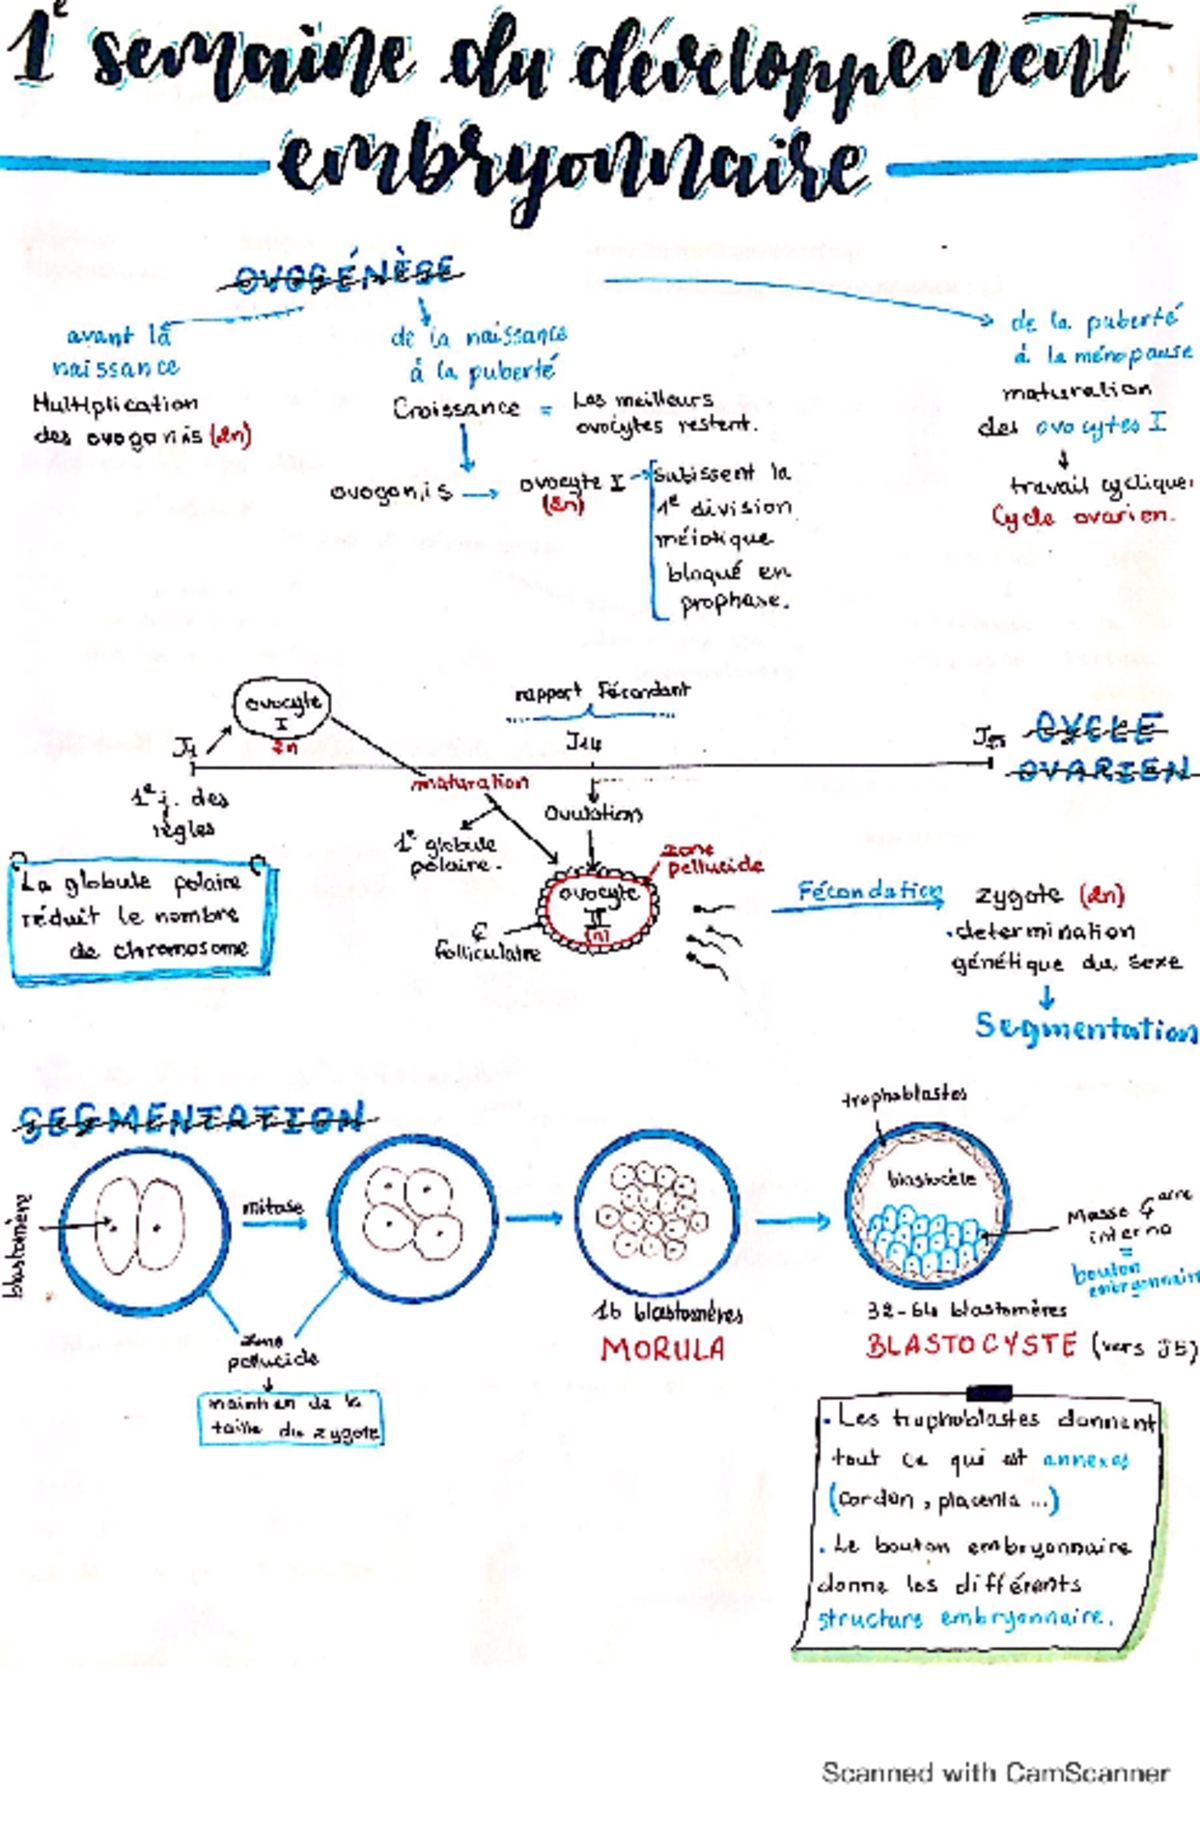 1e semaine du développement
embryonnaire
OVOGÉNÈSE
avant la
naissance
Multiplication
des ovogonis (2n)
de la naissance
à la puberté
Croissance = Les meilleurs
ovocytes restent.
ovogonis → ovocyte I →
(2n)
subissent la
1e division
méiotique
bloqué en
prophase.
de la puberté
à la ménopause
maturation
des ovocytes I
travail cyclique
Cycle ovarien.
ovocyte
I
2n
rapport fécondant
J1
J14
J28
CYCLE
OVARIEN
1e j. des
règles
maturation
Ovulation
1e globule
polaire
zone
pellucide
ovocyte
II
(n)
folliculaire
La globule polaire
réduit le nombre
de chromosome
Fécondation
zygote (2n)
.determination
génétique du sexe
Segmentation
SEGMENTATION
blastomère
mitose
zone
pellucide
maintien de la
taille du zygote
16 blastomères
MORULA
trophoblastes
blastocèle
Masse Çaire
interne
=
bouton
embryonnaire
32-64 blastomères
BLASTOCYSTE (vers J5)
. Les trophoblastes donnent
tout ce qui est annexes
(Cordon, placenta ...)
. Le bouton embryonnaire
donne les différents
structure embryonnaire.
Scanned with CamScanner